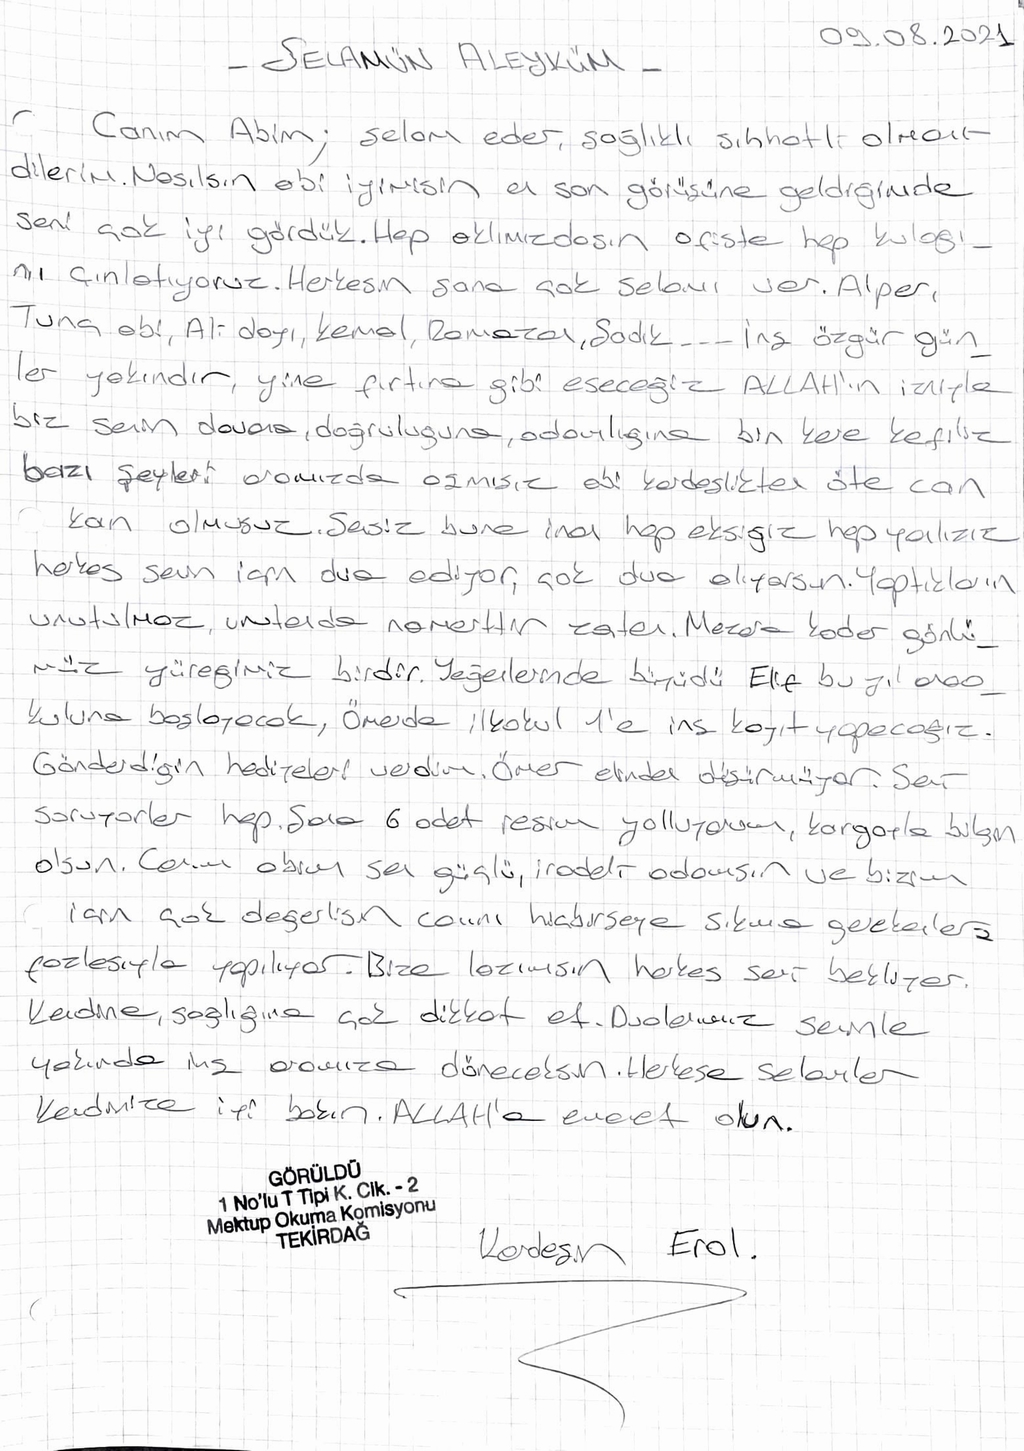 09.08.2021
- SELAMÜN ALEYKÜM -
Canım Abim; selam eder, sağlıklı sıhhatli olmanı
dilerim. Nasılsın abi iyimisin en son görüşüne geldiğimde
seni çok iyi gördük. Hep aklımızdasın ofiste hep kulağı-
nı çınlatıyoruz. Herkesin sana çok selamı var. Alper,
Tunç abi, Ali dayı, Kemal, Ramazan, Sadık --- inş özgür gün_
ler yakındır, yine fırtına gibi eseceğiz ALLAH'ın izniyle
biz senin davana, doğruluğuna, adamlığına bin kere kefiliz
bazı şeyleri aramızda aşmışız abi kardeşlikten öte can
kan olmuşuz. Sensiz buna inan hep eksiğiz hep yalnızız
herkes senin için dua ediyor, çok dua alıyorsun. Yaptıkların
unutulmaz, unutanda namerttir zaten. Mezara kadar gönlü_
müz yüreğimiz birdir. Yeğenlerinde büyüdü Elif bu yıl anao_
kuluna başlayacak, Ömerde ilkokul 1'e inş kayıt yapacağız.
Gönderdiğin hediyeleri verdim. Ömer elinden düşürmüyor. Seni
soruyorlar hep. Sana 6 adet resim yolluyorum, kargoyla bilgin
olsun. Canım abim sen güçlü, iradeli adamsın ve bizim
için çok değerlisin canını hiçbirşeye sıkma gerekenler
fazlasıyla yapılıyor. Bize lazımsın herkes seni bekliyor.
Kendine, sağlığına çok dikkat et. Dualarımız seninle
yakında inş aramıza döneceksin. Herkese selamlar
kendinize iyi bakın. ALLAH'a emanet olun.
GÖRÜLDÜ
1 No'lu T Tipi K. Cik. - 2
Mektup Okuma Komisyonu
TEKİRDAĞ
Kardeşin Erol.